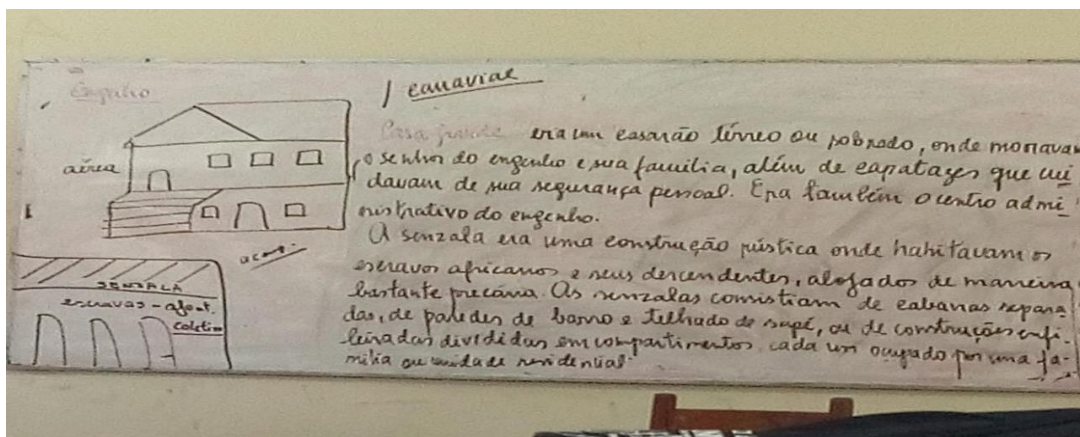 Engenho
canaviae
aérea
Casa grande era um casarão térreo ou sobrado, onde moravam
o senhor do engenho e sua família, além de capatazes que cui
davam de sua segurança pessoal. Era também o centro admi-
nistrativo do engenho.
A senzala era uma construção rústica onde habitavam os
escravos africanos e seus descendentes, alojados de maneira
bastante precária. As senzalas consistiam de cabanas separa-
das, de paredes de barro e telhado de sapé, ou de construções enfi-
leiradas divididas em compartimentos cada um ocupado por uma fa-
mília ou unidade residencial.
SENZALA
escravas - 
coletivo